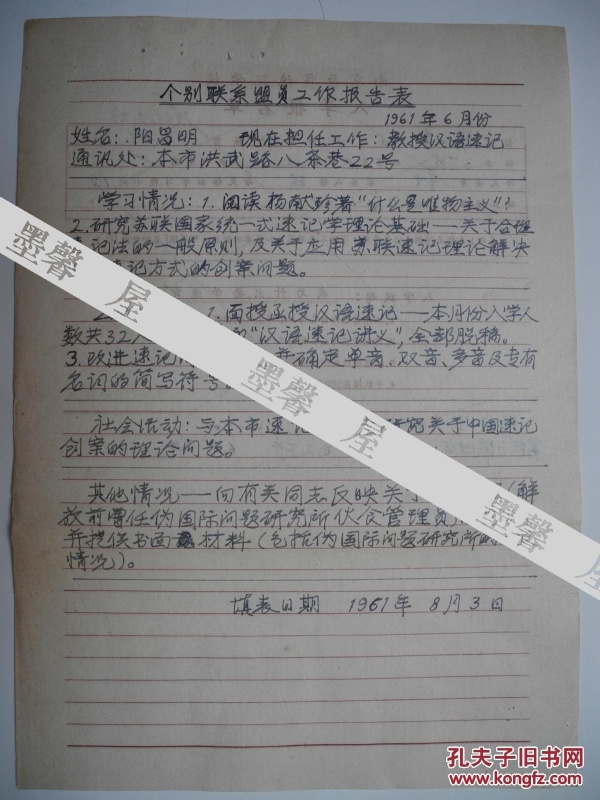 个别联系盟员工作报告表
1961年6月份
姓名：阳昌明 现在担任工作：教授汉语速记
通讯处：本市洪武路八条巷22号
学习情况：1.阅读杨献珍著"什么是唯物主义"？
2.研究苏联国家统一式速记学理论基础——关于合理
记法的一般原则，及关于应用苏联速记理论解决
记方式的创案问题。
1.面授函授汉语速记——本月份入学人
数共32 "汉语速记讲义"，全部脱稿。
3.改进速记 并确定单音、双音、多音及专有
名词的简写符号
社会活动：与本市速记 关于中国速记
创案的理论问题。
其他情况——向有关同志反映关于 （解
放前曾任伪国际问题研究所伙食管理员
并提供书面材料（包括伪国际问题研究所的
情况）。
填表日期 1961年8月3日
墨馨屋
墨馨屋
墨馨屋
孔夫子旧书网
www.kongfz.com